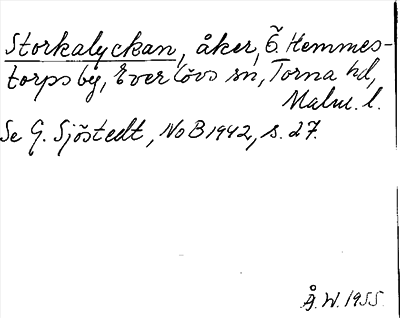 Storkalyckan, åker, Ö. Hemmes-
torps by, Everlövs sn, Torna hd,
Malm. l.
Se G. Sjöstedt, NoB 1942, s. 27.
Å. W. 1955.